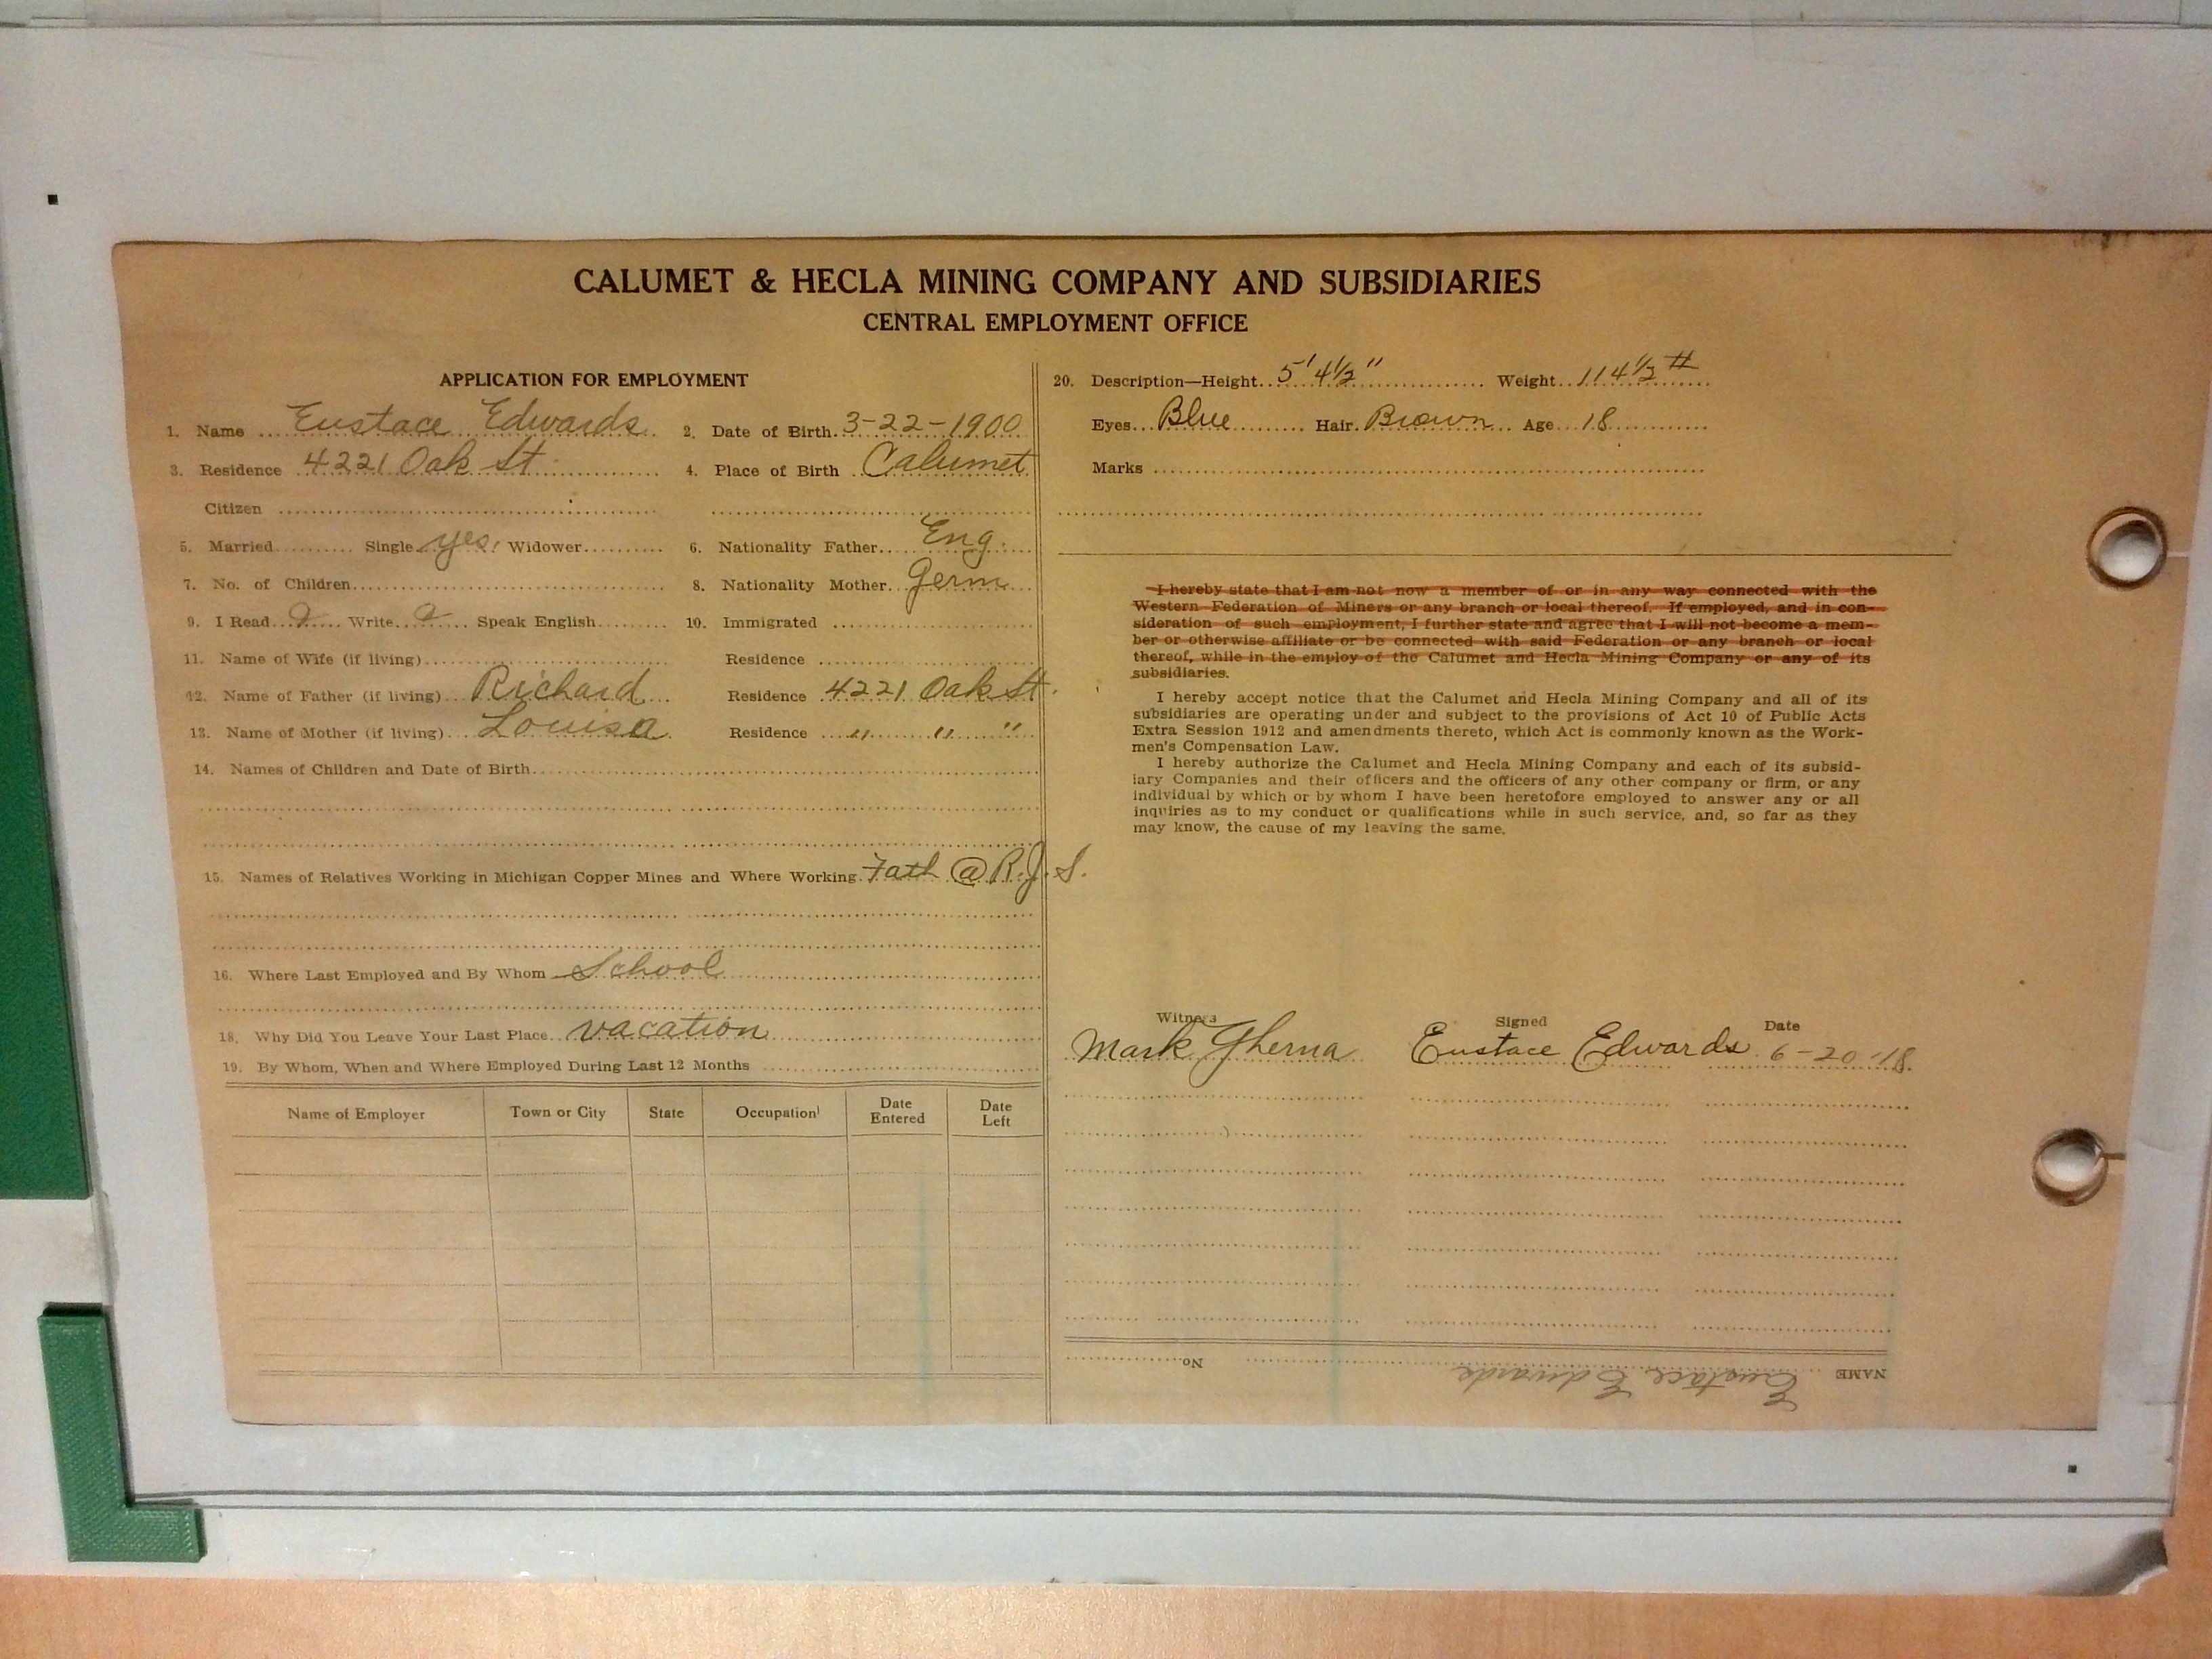 CALUMET & HECLA MINING COMPANY AND SUBSIDIARIES
CENTRAL EMPLOYMENT OFFICE
APPLICATION FOR EMPLOYMENT
1. Name Eustace Edwards 2. Date of Birth 3-22-1900
3. Residence 4221 Oak St 4. Place of Birth Calumet
Citizen
5. Married Single yes Widower 6. Nationality Father Eng.
7. No. of Children 8. Nationality Mother Germ
9. I Read Write Speak English 10. Immigrated
11. Name of Wife (if living) Residence
12. Name of Father (if living) Richard Residence 4221 Oak St.
13. Name of Mother (if living) Louisa Residence " " "
14. Names of Children and Date of Birth
15. Names of Relatives Working in Michigan Copper Mines and Where Working Fath @ R.J.S.
16. Where Last Employed and By Whom School
18. Why Did You Leave Your Last Place vacation
19. By Whom, When and Where Employed During Last 12 Months
Name of Employer Town or City State Occupation Date Entered Date Left
20. Description—Height 5' 4 1/2" Weight 114 1/2 #
Eyes Blue Hair Brown Age 18
Marks
I hereby state that I am not now a member of or in any way connected with the
Western Federation of Miners or any branch or local thereof. If employed, and in con-
sideration of such employment, I further state and agree that I will not become a mem-
ber or otherwise affiliate or be connected with said Federation or any branch or local
thereof, while in the employ of the Calumet and Hecla Mining Company or any of its
subsidiaries.
I hereby accept notice that the Calumet and Hecla Mining Company and all of its
subsidiaries are operating under and subject to the provisions of Act 10 of Public Acts
Extra Session 1912 and amendments thereto, which Act is commonly known as the Work-
men's Compensation Law.
I hereby authorize the Calumet and Hecla Mining Company and each of its subsid-
iary Companies and their officers and the officers of any other company or firm, or any
individual by which or by whom I have been heretofore employed to answer any or all
inquiries as to my conduct or qualifications while in such service, and, so far as they
may know, the cause of my leaving the same.
Witness Signed Date
Mark Gherna Eustace Edwards 6-20-18.
NAME Eustace Edwards No.